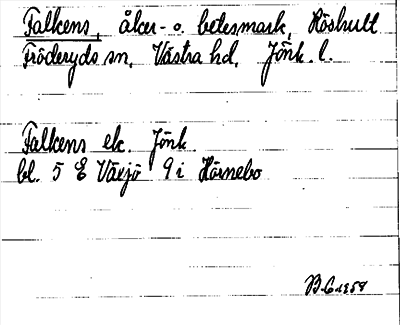 Falkens, åker- o. betesmark, Höshult
Fröderyds sn, Västra hd, Jönk. l.
Falkens ek. Jönk.
bl. 5 E Växjö 9 i Hörnebo
B.G 1959